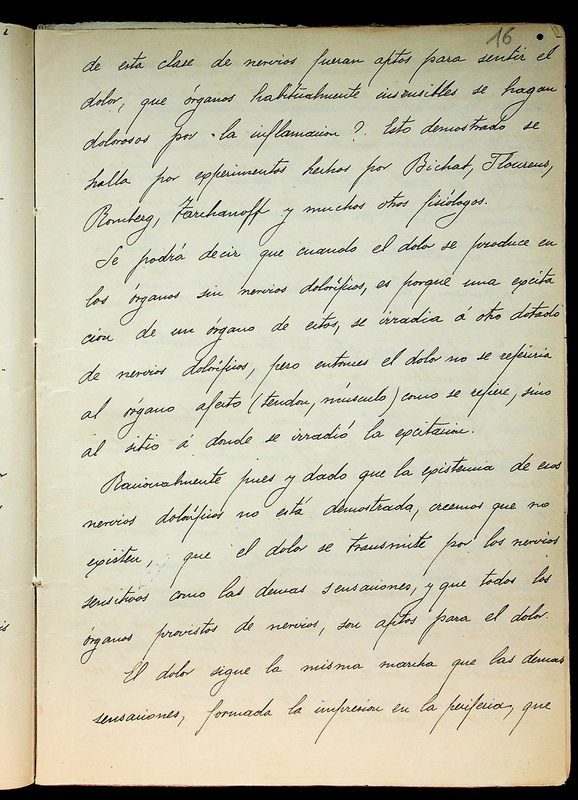 16
de esta clase de nervios fueran aptos para sentir el
dolor, que órganos habitualmente insensibles se hagan
dolorosos por la inflamacion? Esto demostrado se
halla por experimentos hechos por Bichat, Flourens,
Romberg, Tarchanoff y muchos otros fisiólogos.
Se podrá decir que cuando el dolor se produce en
los órganos sin nervios dolorificos, es porque una excita
cion de un órgano de estos, se irradia á otro dotado
de nervios dolorificos, pero entonces el dolor no se referiria
al órgano afecto (tendon, músculo) como se refiere, sino
al sitio á donde se irradió la excitacion.
Racionalmente pues y dado que la existencia de esos
nervios dolorificos no está demostrada, creemos que no
existen, que el dolor se transmite por los nervios
sensitivos como las demas sensaciones, y que todos los
órganos provistos de nervios, son aptos para el dolor.
El dolor sigue la misma marcha que las demas
sensaciones, formada la impresion en la periferia, que